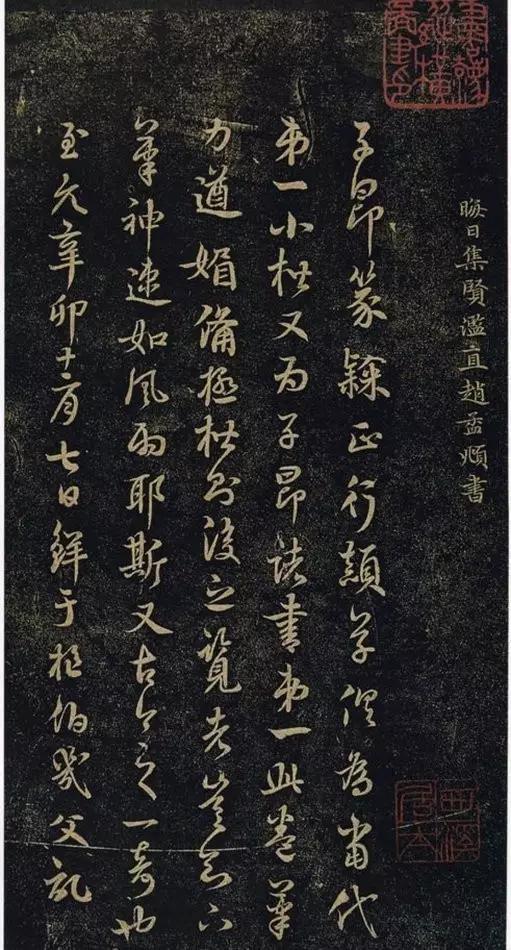 晦日集賢濫直趙孟頫書
子昂篆隸正行顛草俱為當代
第一小楷又為子昂諸書第一此卷筆
力遒媚備極楷則後之覽者豈知下
筆神速如風雨耶斯又古今之一奇也
至元辛卯十一月七日鮮于樞伯幾父記